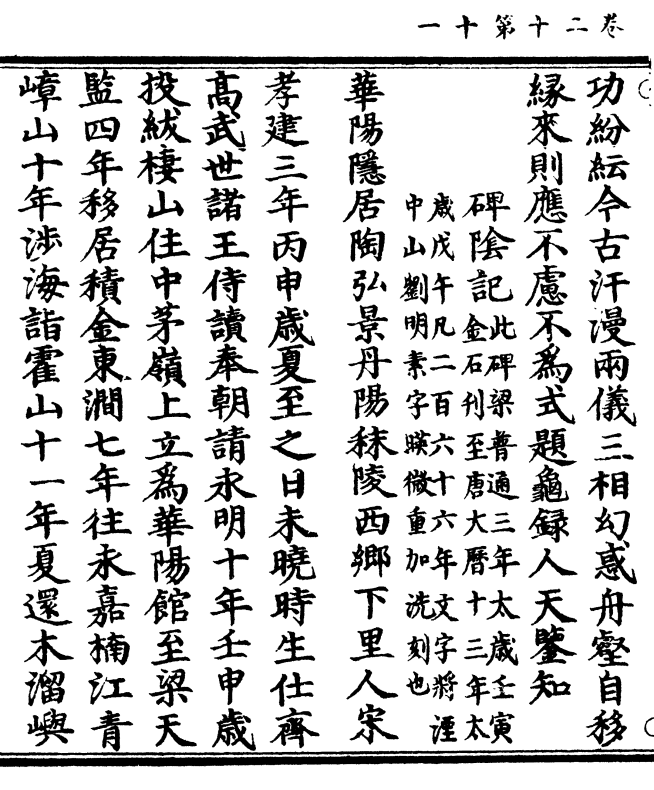 卷二十第十一
功紛紜今古汗漫兩儀三相幻惑舟壑自移
緣來則應不慮不爲式題龜錄人天鑒知
碑陰記
此碑梁普通三年太歲壬寅
金石刊至唐大曆十三年太
歲戊午凡二百六十六年文字將湮
中山劉明素字暎微重加洗刻也
華陽隱居陶弘景丹陽秣陵西鄉下里人宋
孝建三年丙申歲夏至之日未曉時生仕齊
高武世諸王侍讀奉朝請永明十年壬申歲
投紱棲山住中茅嶺上立爲華陽館至梁天
監四年移居積金東澗七年往永嘉楠江青
嶂山十年涉海詣霍山十一年夏還木溜嶼